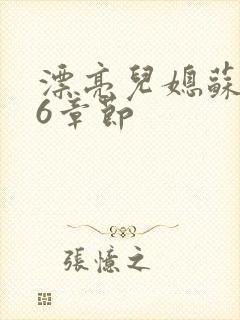 漂亮兒媳蘇
6章節
張憶之